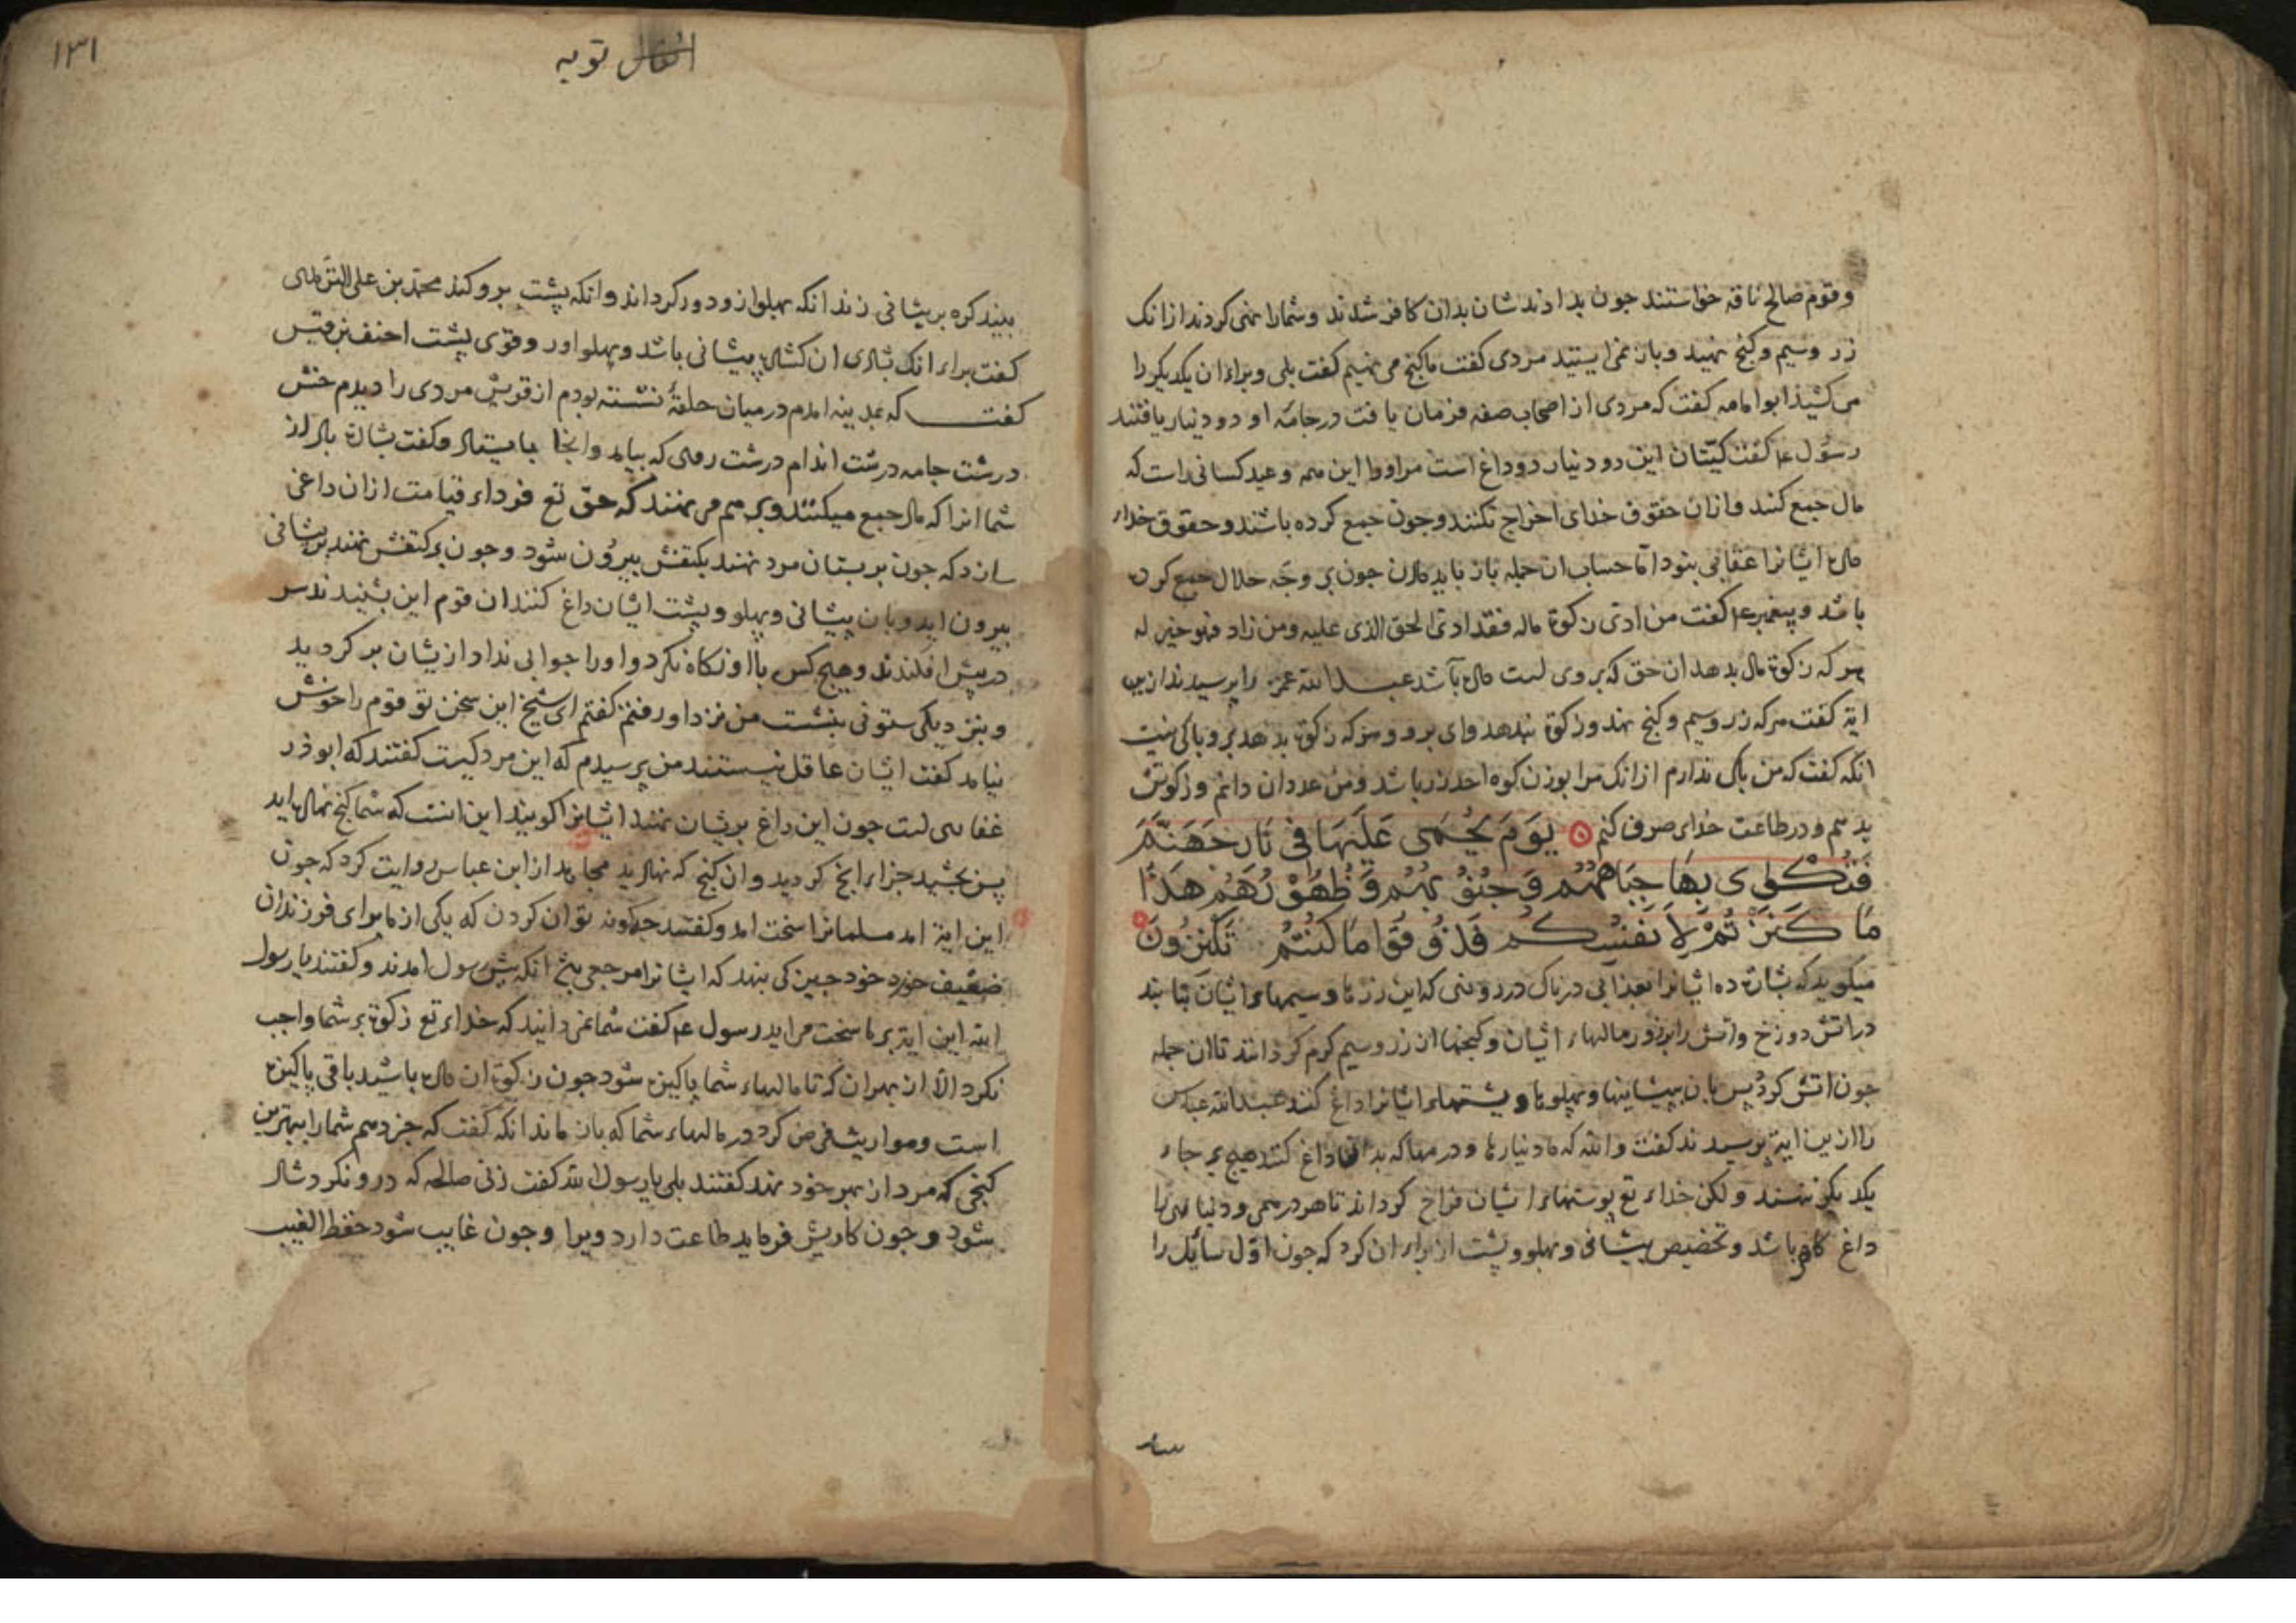 وقوم صالح ناقه خواستند جون بدادندشان بدان کافر شدند وشمارا نهی کردند از انک
زر وسیم وکنج نهید وباز نمی ایستید مردی کفت ما کنج می نهیم کفت بلی وبراء ان یکدیکر را
می کشید ابو امامه کفت که مردی از اصحاب صفه فرمان یافت در جامه او دو دینار یافتند
رسول ع م کفت کیتان این دو دینار دو داغ است مر اورا این همه وعید کسانی راست که
مال جمع کنند واز ان حقوق خدای اخراج نکنند وجون جمع کرده باشند وحقوق خداء
مال ایشانرا عقابی بنود اما حساب ان جمله باز باید دادن جون بر وجه حلال جمع کرده
باشد وپیغمبر ع م کفت من ادی زکوة ماله فقد ادی الحق الذی علیه ومن زاد فهو خیر له
هر که زکوة مال بدهد ان حق که بر وی است داده باشد عبد الله عمر را پرسیدند از این
ایة کفت هر که زر وسیم وکنج نهد وزکوة ندهد وای برو وهر که زکوة بدهد برو باکی نیست
انکه کفت که من باکی ندارم از انک مرا بوزن کوه احد زر باشد ومن عدد ان دانم وزکوتش
بدهم ودر طاعت خداء صرف کنم یَوْمَ یُحْمَى عَلَیْهَا فِی نَارِ جَهَنَّمَ
فَتُكْوَى بِهَا جِبَاهُهُمْ وَجُنُوبُهُمْ وَظُهُورُهُمْ هَذَا
مَا كَنَزْتُمْ لِأَنْفُسِكُمْ فَذُوقُوا مَا كُنْتُمْ تَكْنِزُونَ
میکوید که بشارة ده ایشانرا بعذابی دردناک در روزی که این زرها وسیمهاء ایشان بتابند
در اتش دوزخ واتش را بر زور مالهاء ایشان وکنجها ان زر وسیم کرم کردانند تا ان جمله
جون اتش کردد پس بان پیشانیها وپهلوها وپشتهاء ایشانرا داغ کنند عبد الله عباس
را از این ایة پرسیدند کفت والله که دینارها ودرمها که بدانها داغ کنند هیج بر جاء
یکدیکر ننهند ولکن خداء تع پوستهاء ایشان فراخ کرداند تا هر درهمی ودیناری را
داغ کافر باشد وتخصیص پیشانی وپهلو وپشت از براء ان کرد که جون اول سائل را
ستد
۱۳۱
انفال توبه
بیند کره بر پیشانی زند انکه پهلو ازو دور کرداند وانکه پشت برو کند محمد بن علی الترمذی
کفت براء انک شادی ان کشاده پیشانی باشد وپهلواور وقوی پشت احنف بن قیس
کفت که بمدینه امدم در میان حلقهٔ نشسته بودم از قریش مردی را دیدم خشن
درشت جامه درشت اندام درشت روی که بیامد وانجا بایستاد وکفت بشارة باد از
شما انرا که مال جمع میکنند وبر هم می نهند که حق تع فرداء قیامت از ان داغی
سازد که جون بر پستان مرد نهند بکتفش بیرون شود وجون بر کتفش نهند بر پیشانی
بیرون اید وبان پیشانی وپهلو وپشت ایشان داغ کنند ان قوم این بشنیدند سر
در پیش افکندند وهیج کس با او نکاه نکرد واورا جوابی نداد از یشان برکردید
وبنزدیکی ستونی بنشست من نزد او رفتم کفتم ای شیخ این سخن تو قوم را خوش
نیامد کفت ایشان عاقل نیستند من پرسیدم که این مرد کیست کفتند که ابوذر
غفاری است جون این داغ بریشان نهند ایشانرا کویند این انست که شما کنج نهاده اید
پس بچشید جزاء انچ کردید وان کنج که نهادید مجاهد از ابن عباس روایت کرد که جون
این ایة امد مسلمانرا سخت امد وکفتند جکونه توان کردن که یکی از ما برای فرزندان
ضعیف خرد خود جیزکی بنهد که ایشانرا مرجعی بود انکه پیش رسول امدند وکفتند یا رسول
الله این ایة بر ما سخت می اید رسول ع م کفت شما نمی دانید که خداء تع زکوة بر شما واجب
نکرد الا از بهر ان که تا مالهاء شما پاکیزه شود جون زکوة ان داده باشید باقی پاکیزه
است ومواریث فرض کرد در مالهاء شما که بازماند انکه کفت که خبر دهم شمارا ببهترین
کنجی که مرد از بهر خود نهد کفتند بلی یا رسول الله کفت زنی صالحه که درو نکرد شاد
شود وجون کاریش فرماید طاعت دارد ویرا وجون غایب شود حفظ الغیب